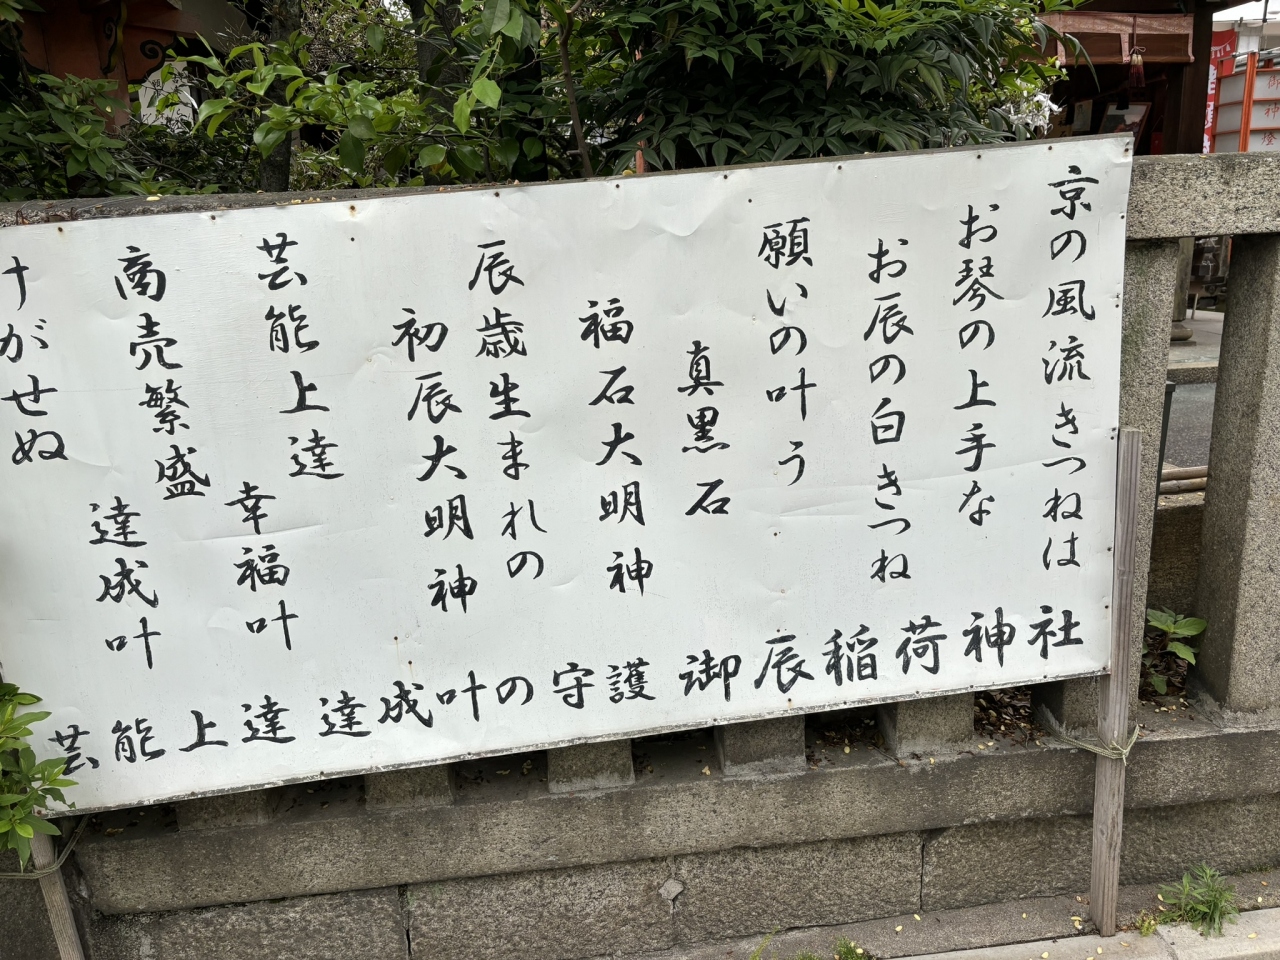 京の風流きつねは
お琴の上手な
お辰の白きつね
願いの叶う
真黒石
福石大明神
辰歳生まれの
初辰大明神
芸能上達
幸福叶
商売繁盛
達成叶
すがせぬ
御辰稲荷神社
芸能上達 達成叶の守護